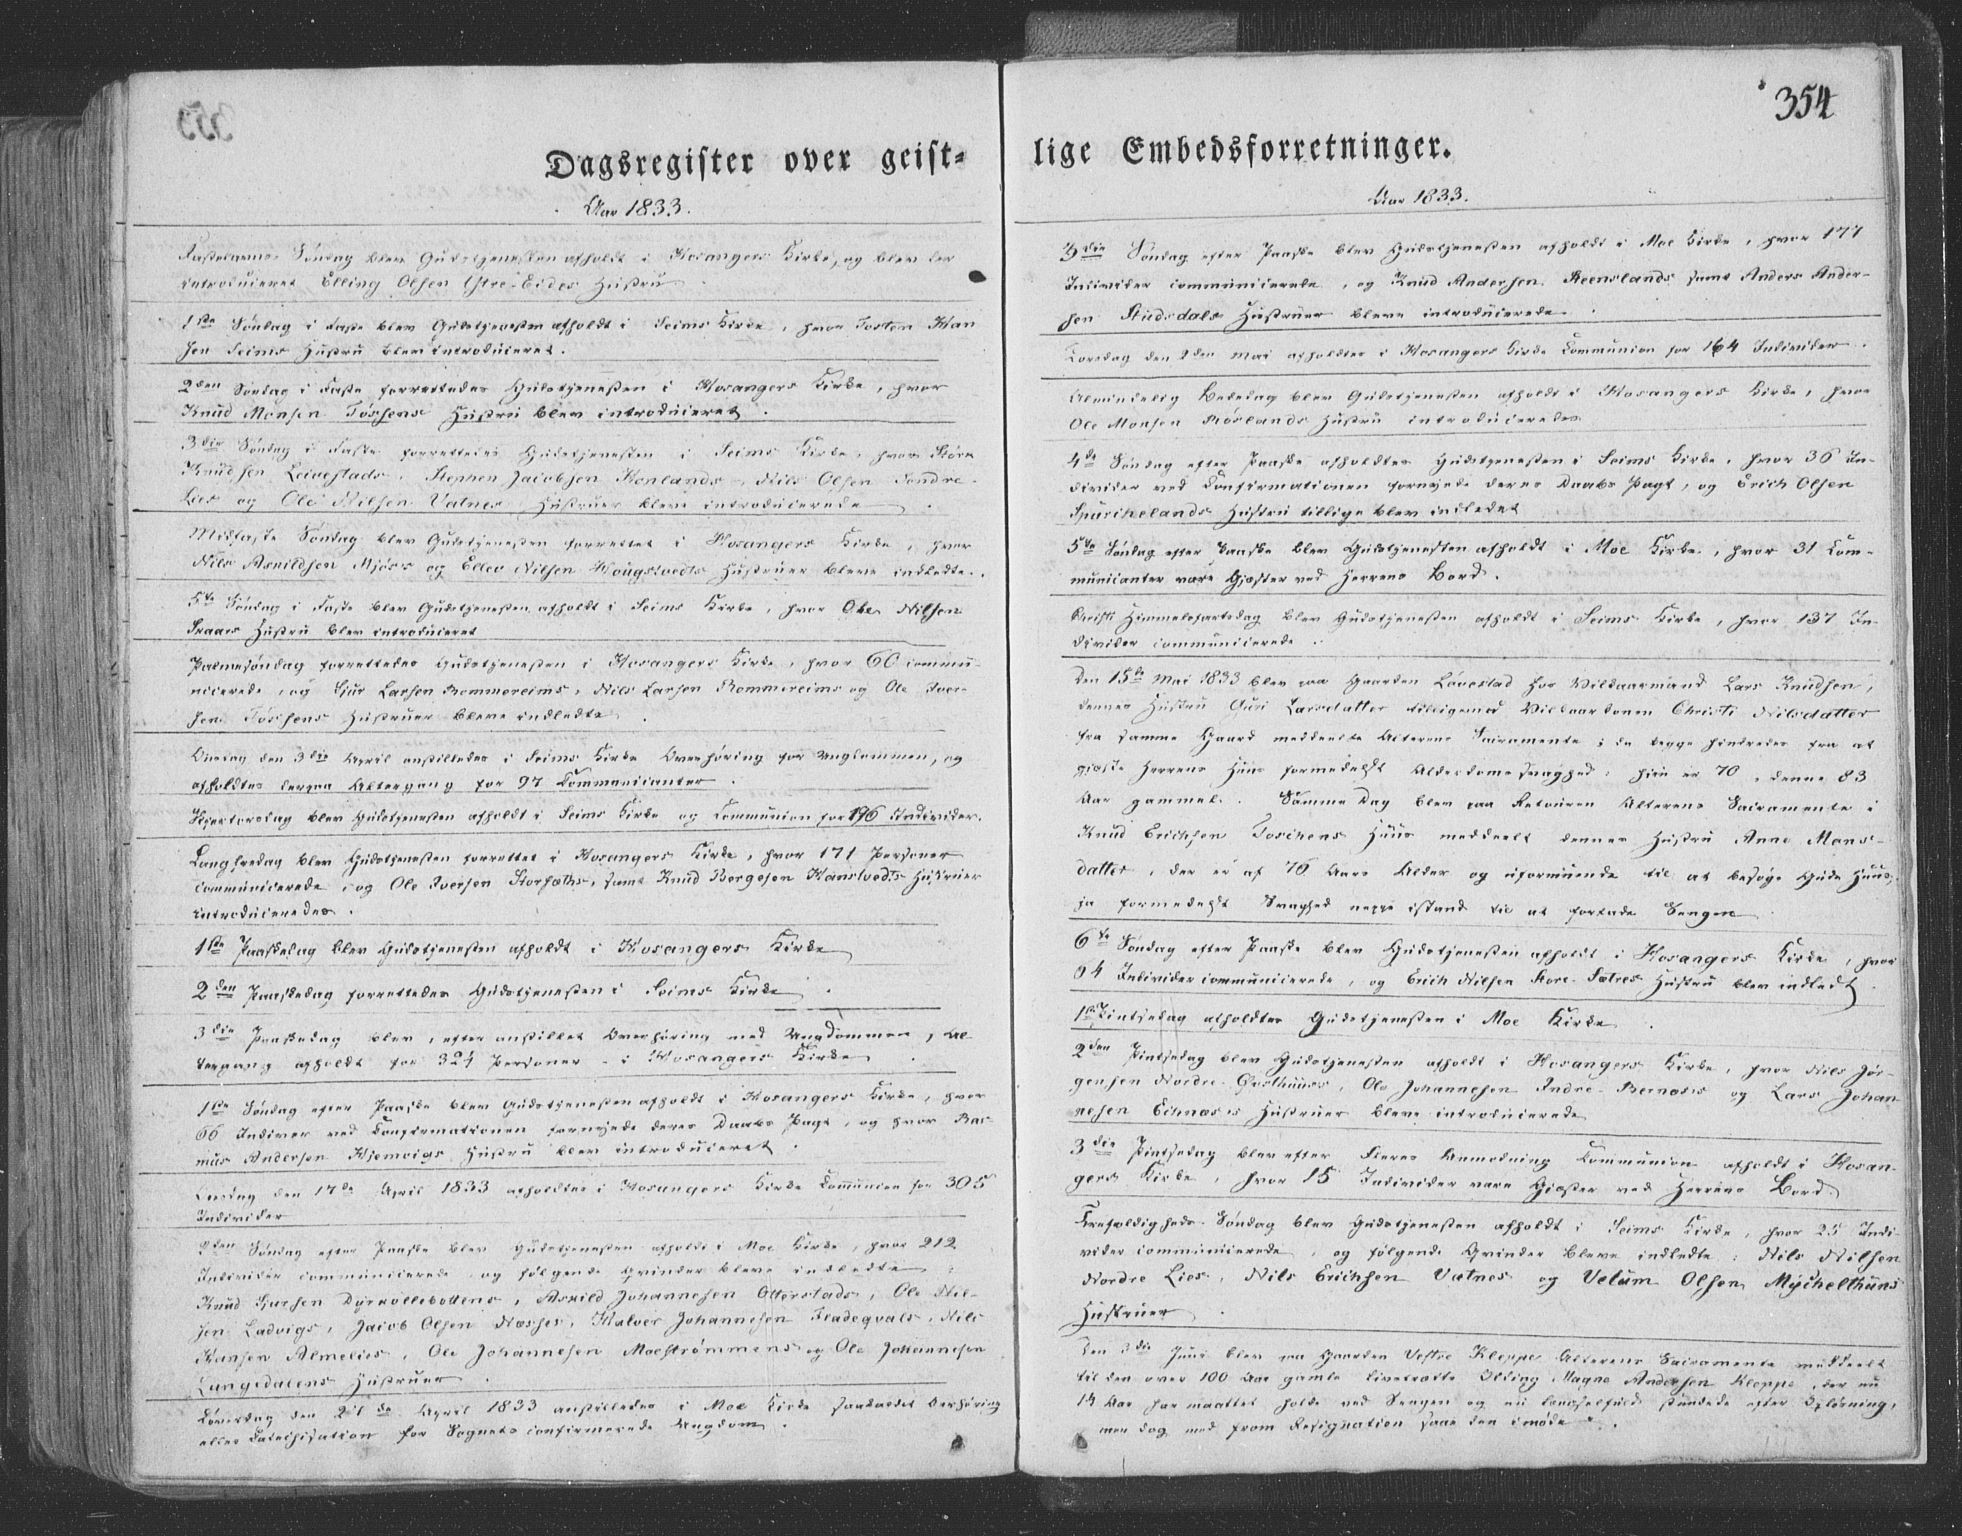 353
Dagsregister over geist-
Aar 1833.
Fastelavns Søndag blev Gudstjenesten afholdt i Hosangers Kirke, og blev der
introduceret Elling Olsen Ytre-Eides Hustru
1ste Søndag i Faste blev Gudstjenesten afholdt i Seims Kirke, hvor Josten Han
sen Seims Hustru blev introduceret.
2den Søndag i Faste forrettedes Gudstjenesten i Hosangers Kirke, hvor
Knud Monsen Tössens Hustru blev introduceret.
3die Søndag i Faste forrettedes Gudstjenesten i Seims Kirke, hvor
Knudsen Leivestads, Stephen Jacobsen Konlands, Nils Olsen Søndre-
Lies og Ole Nilsen Vatnes Hustruer bleve introducerede.
Midfaste Søndag blev Gudstjenesten forrettet i Hosangers Kirke, hvor
Nils Askildsen Mjøs og Ellev Nilsen Hougstvedts Hustruer bleve indledte.
5te Søndag i Faste blev Gudstjenesten afholdt i Seims Kirke, hvor Ole Nilsen
Hustru blev introduceret
Palmesøndag forrettedes Gudstjenesten i Hosangers Kirke, hvor 60 commu-
nicerede, og Sjur Larsen Rommereims, Nils Larsen Rommereims og Ole Iver-
sen Tössens Hustruer bleve indledte.
Onsdag den 3die April anstilledes i Seims Kirke Overhøring for Ungdommen, og
afholdtes derpaa Altergang for 97 Communicanter.
Skjertorsdag blev Gudstjenesten afholdt i Seims Kirke og Communion for 196 Individer.
Langfredag blev Gudstjenesten forrettet i Hosangers Kirke, hvor 171 Personer
communicerede, og Ole Iversen Storsæths, samt Knud Børgesen Hanstvedts Hustruer
introduceredes.
1ste Paaskedag blev Gudstjenesten afholdt i Hosangers Kirke
2den Paaskedag forrettedes Gudstjenesten i Seims Kirke.
3die Paaskedag blev, efter anstillet Overhøring med Ungdommen, Al
tergang afholdt for 324 Personer i Hosangers Kirke.
1ste Søndag efter Paaske blev Gudstjenesten afholdt i Hosangers Kirke, hvor
66 Indiver ved Confirmationen fornyede deres Daabs Pagt, og hvor Ras
mus Andersen Hjemvigs Hustru blev introduceret.
Onsdag den 17de April 1833 afholdtes i Hosangers Kirke Communion for 305
Individer
2den Søndag efter Paaske blev Gudstjenesten afholdt i Moe Kirke, hvor 212
Individer communicerede og følgende Qvinder bleve indledte:
Knud Sjursen Dyrkollebottens, Askild Johannesen Otterstads, Ole Nil-
sen Ladvigs, Jacob Olsen Næsses, Halvor Johannesen Fladeqvals, Nils
Hansen Almelies, Ole Johannesen Moestrømmens og Ole Johannesen
Langedalens Hustruer.
Løverdag den 27de April 1833 anstilledes i Moe Kirke Overhøring
eller Catechisation for Sognets confirmerede Ungdom.
354
lige Embedsforretninger.
Aar 1833.
3die Søndag efter Paaske blev Gudstjenesten afholdt i Moe Kirke, hvor 177
Individer communicerede, og Knud Andersen Reenslands samt Anders Ander-
sen Studsdals Hustruer bleve introducerede.
Torsdag den 2den Mai afholdtes i Hosangers Kirke Communion for 164 Individer.
Almindelig Bededag blev Gudstjenesten afholdt i Hosangers Kirke, hvor
Ole Monsen Rörlands Hustru introduceredes
4de Søndag efter Paaske afholdtes Gudstjenesten i Seims Kirke, hvor 36 In-
divider ved Confirmationen fornyede deres Daabs Pagt, og Erich Olsen
Spurchelands Hustru tillige blev indledet
5te Søndag efter Paaske blev Gudstjenesten afholdt i Moe Kirke, hvor 31 Com-
municanter vare Gjæster ved Herrens Bord.
Christi Himmelsfartsdag blev Gudstjenesten afholdt i Seims Kirke, hvor 137 In-
divider communicerede.
Den 15de Mai 1833 blev paa Gaarden Lövestad hos Vilkaarmand Lars Knudsen,
dennes Hustru Guri Larsdatter tilligemed Vilkaarkonen Christi Nilsdatter
fra samme Gaard meddeelte Alterens Sacramente; da begge hindredes fra at
gjæste Herrens Huus formedelst Alderdomssvaghed; hiin er 70, denne 83
Aar gammel. Samme Dag blev paa Retouren Alterens Sacramente i
Knud Erichsen Toschens Huus meddeelt dennes Hustru Anne Mons-
datter, der er af 76 Aars Alder og uformuende til at besøge Guds Huus,
ja formedelst Svaghed neppe istand til at forlade Sengen
6te Søndag efter Paaske blev Gudstjenesten afholdt i Hosangers Kirke, hvor
94 Individer communicerede, og Erich Nilsen Store-Sætres Hustru blev indledt.
1ste Pintsedag afholdtes Gudstjenesten i Moe Kirke.
2den Pintsedag blev Gudstjenesten afholdt i Hosangers Kirke, hvor Nils Jör-
gensen Nordre-Qvsthuuss, Ole Johannesen Indre Bernæs og Lars Johan
nesen Echnæss Hustruer bleve introducerede
3die Pintsedag blev efter Fleres Anmodning Communion afholdt i Hosan-
gers Kirke, hvor 15 Individer vare Gjæster ved Herrens Bord.
Trefoldigheds Søndag blev Gudstjenesten afholdt i Seims Kirke, hvor 25 Indi-
vider communicerede, og følgende Qvinder bleve indledte: Nils Nilsen
Nordre Lies, Nils Erichsen Vatnes og Velum Olsen Myckelthuns
Hustruer.
Den 3die Juni blev paa Gaarden Vestre Kleppe Alterens Sacramente meddeelt
til den over 100 Aar gamle livstrætte Olding Magne Andersen Kleppe, der nu
14 Aar har maattet holde ved Sengen og nu længselfuld stundede efter Opløsning,
men dog med from Resignation saae den i møde.